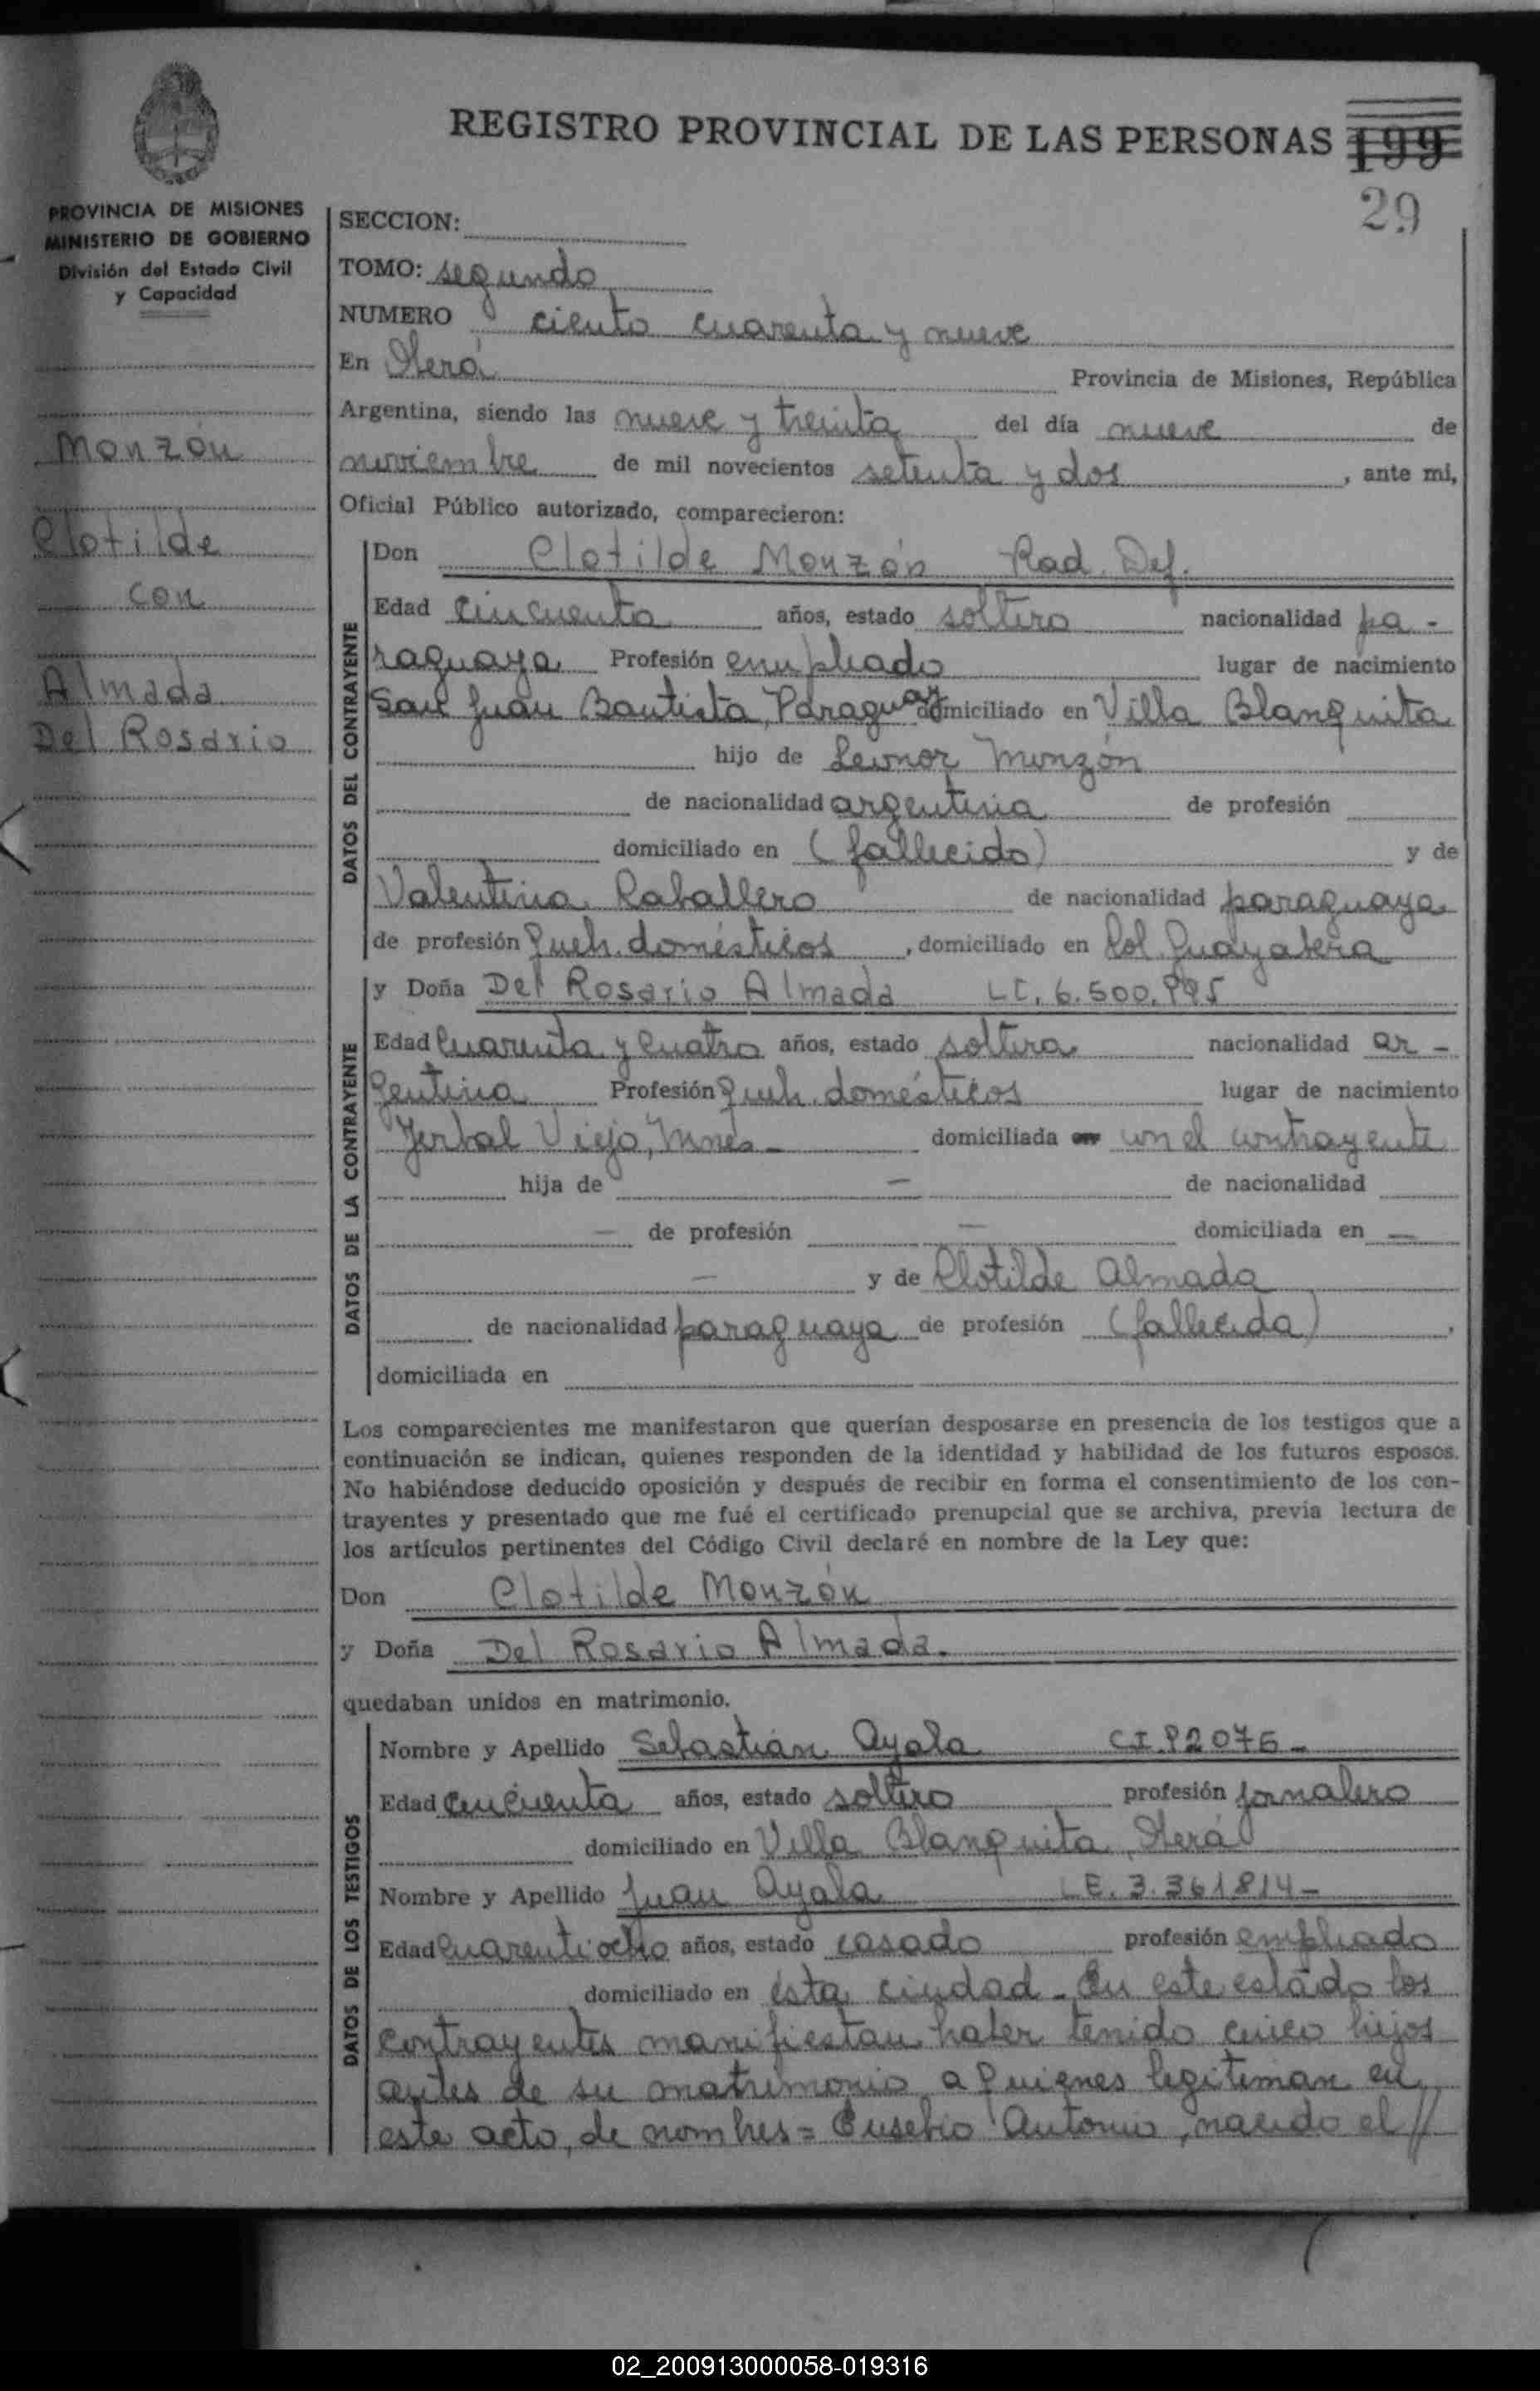 REGISTRO PROVINCIAL DE LAS PERSONAS 199
29
PROVINCIA DE MISIONES
MINISTERIO DE GOBIERNO
División del Estado Civil
y Capacidad
Monzón
Clotilde
con
Almada
Del Rosario
SECCION:
TOMO: segundo
NUMERO ciento cuarenta y nueve
En Oberá Provincia de Misiones, República
Argentina, siendo las nueve y treinta del día nueve de
noviembre de mil novecientos setenta y dos, ante mi,
Oficial Público autorizado, comparecieron:
DATOS DEL CONTRAYENTE
Don Clotilde Monzón Rad. Def.
Edad cincuenta años, estado soltero nacionalidad pa-
raguaya Profesión empleado lugar de nacimiento
San Juan Bautista, Paraguay domiciliado en Villa Blanquita
hijo de Leonor Monzón
de nacionalidad argentina de profesión
domiciliado en (fallecido) y de
Valentina Caballero de nacionalidad paraguaya
de profesión Queh. domésticos, domiciliado en Col. Guayabera
DATOS DE LA CONTRAYENTE
y Doña Del Rosario Almada LC. 6.500.995
Edad Cuarenta y cuatro años, estado soltera nacionalidad ar-
gentina Profesión Queh. domésticos lugar de nacimiento
Yerbal Viejo, Mnes- domiciliada en con el contrayente
hija de - de nacionalidad
- de profesión - domiciliada en -
- y de Clotilde Almada
de nacionalidad paraguaya de profesión (fallecida),
domiciliada en
Los comparecientes me manifestaron que querían desposarse en presencia de los testigos que a
continuación se indican, quienes responden de la identidad y habilidad de los futuros esposos.
No habiéndose deducido oposición y después de recibir en forma el consentimiento de los con-
trayentes y presentado que me fué el certificado prenupcial que se archiva, previa lectura de
los artículos pertinentes del Código Civil declaré en nombre de la Ley que:
Don Clotilde Monzón
y Doña Del Rosario Almada.
quedaban unidos en matrimonio.
DATOS DE LOS TESTIGOS
Nombre y Apellido Sebastián Ayala CI. 92076-
Edad cincuenta años, estado soltero profesión jornalero
domiciliado en Villa Blanquita, Oberá
Nombre y Apellido Juan Ayala LE. 3.361814-
Edad cuarentiocho años, estado casado profesión empleado
domiciliado en ésta ciudad. En este estado los
contrayentes manifiestan haber tenido cinco hijos
antes de su matrimonio a quienes legitiman en
este acto, de nombres= Eusebio Antonio, nacido el //
02_200913000058-019316